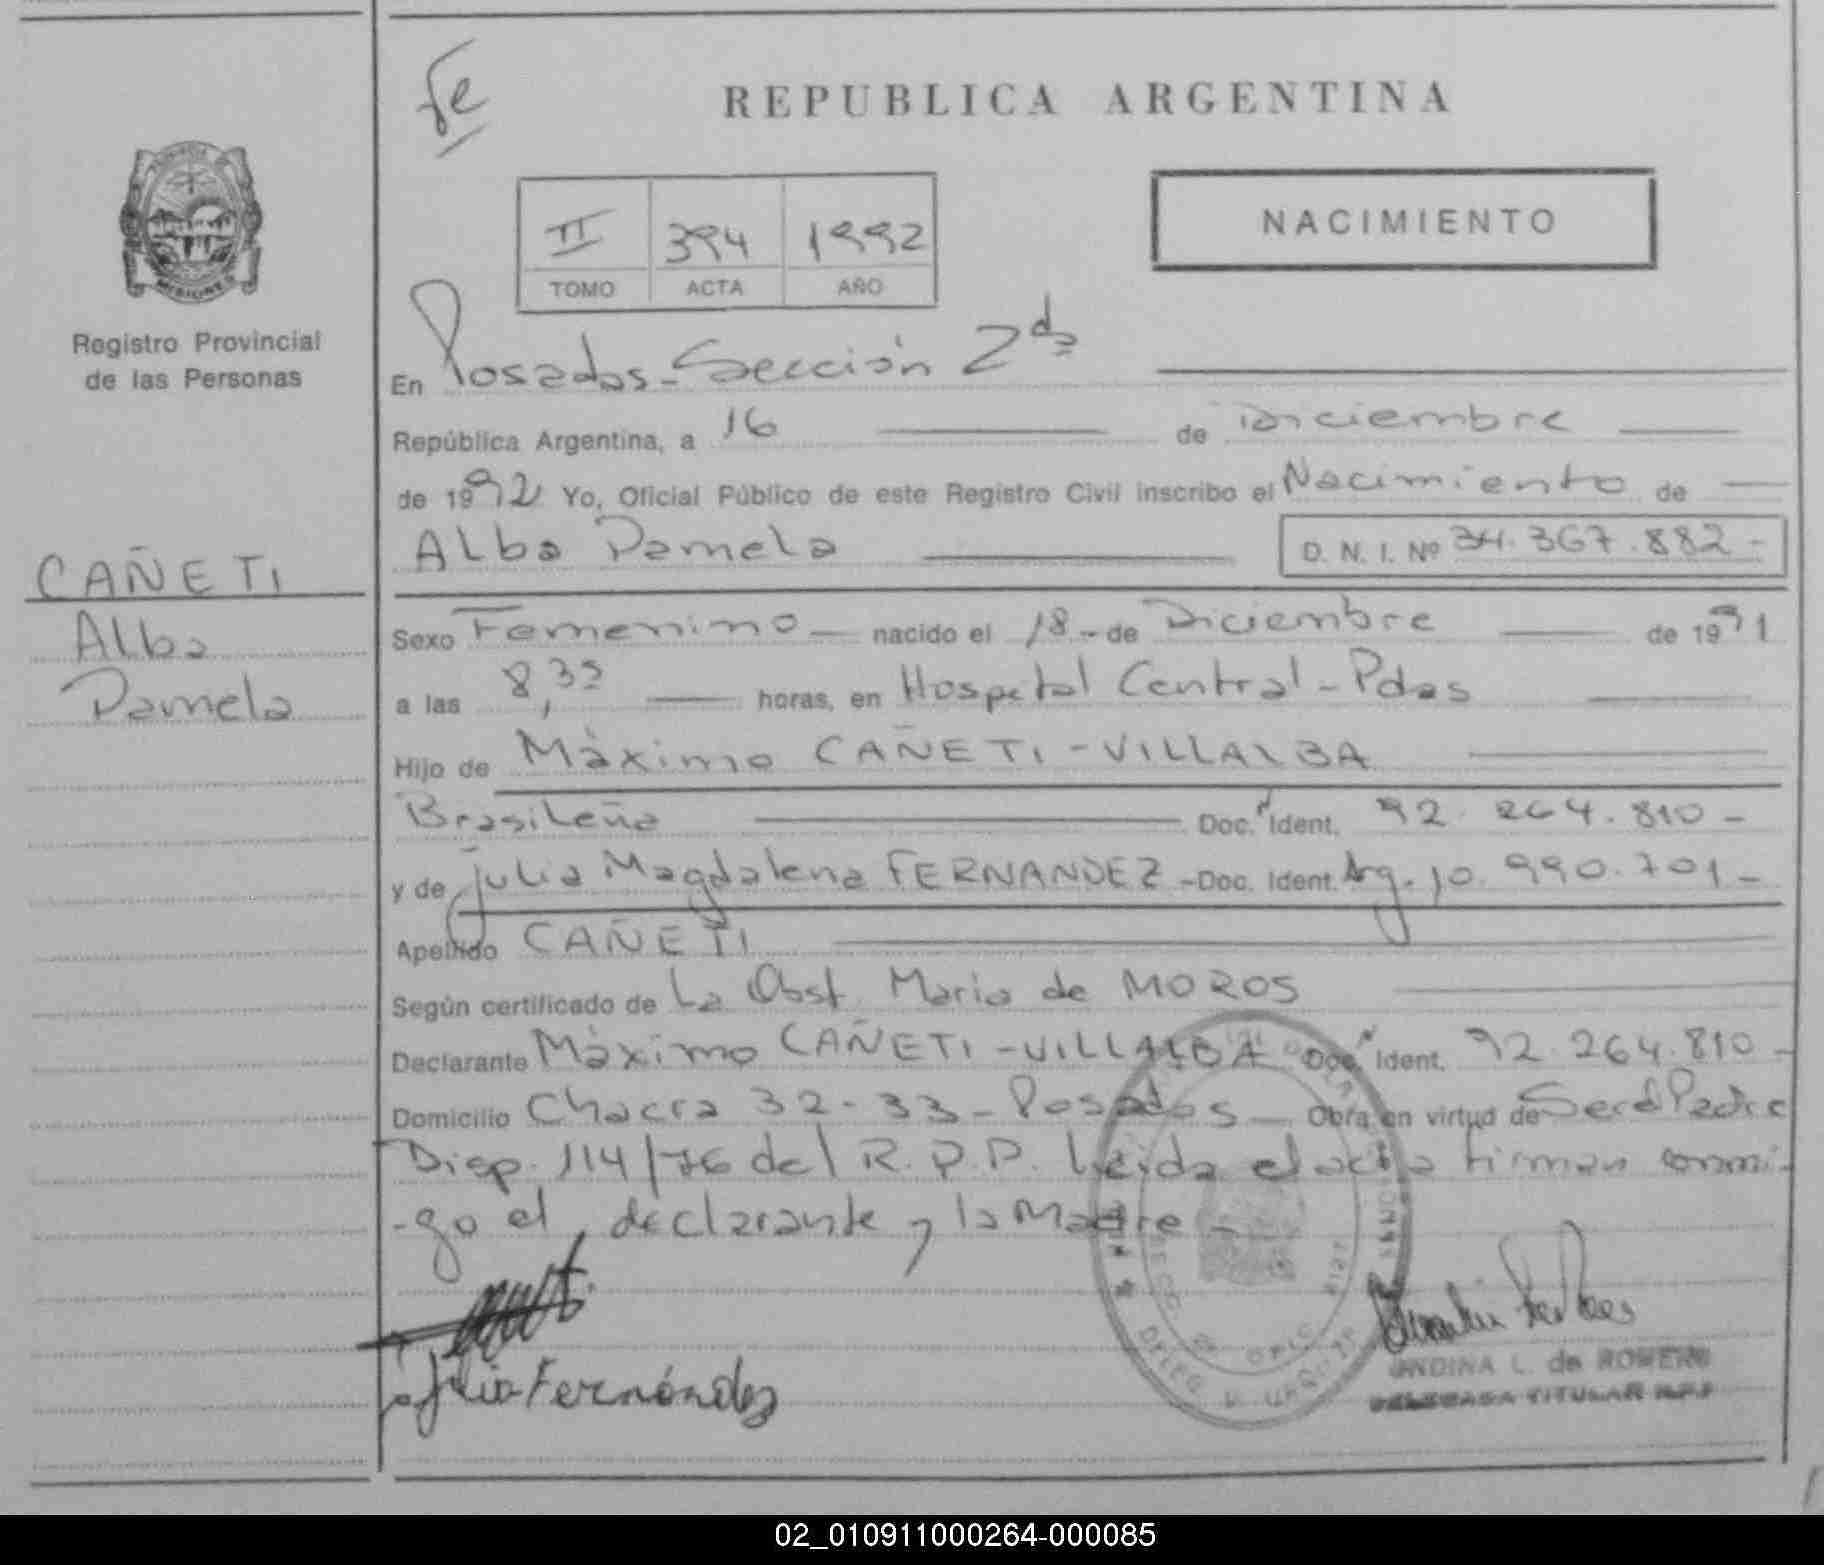 fe
REPUBLICA ARGENTINA
MISIONES
Registro Provincial
de las Personas
II 394 1992
TOMO ACTA AÑO
NACIMIENTO
En Posadas - Sección 2da
República Argentina, a 16 de Diciembre
de 1992 Yo, Oficial Público de este Registro Civil inscribo el Nacimiento de
Alba Pamela D. N. I. Nº 34.367.882-
CAÑETI
Alba
Pamela
Sexo Femenino nacido el 18 - de Diciembre de 1991
a las 8,35 horas, en Hospital Central - Pdas
Hijo de Máximo CAÑETI - VILLALBA
Brasileña Doc. Ident. 92.264.810-
y de Julia Magdalena FERNANDEZ - Doc. Ident. Arg. 10.990.701-
Apellido CAÑETI
Según certificado de La Obst. Maria de MOROS
Declarante Máximo CAÑETI - VILLALBA Doc. Ident. 92.264.810-
Domicilio Chacra 32-33 - Posadas - Obra en virtud de Ser el Padre
Disp. 114/76 del R.P.P. Leida el acta firman conmi-
-go el declarante y la Madre -
Julia Fernández
L. de ROMERO
DELEGADA TITULAR R.P.P.
02_010911000264-000085